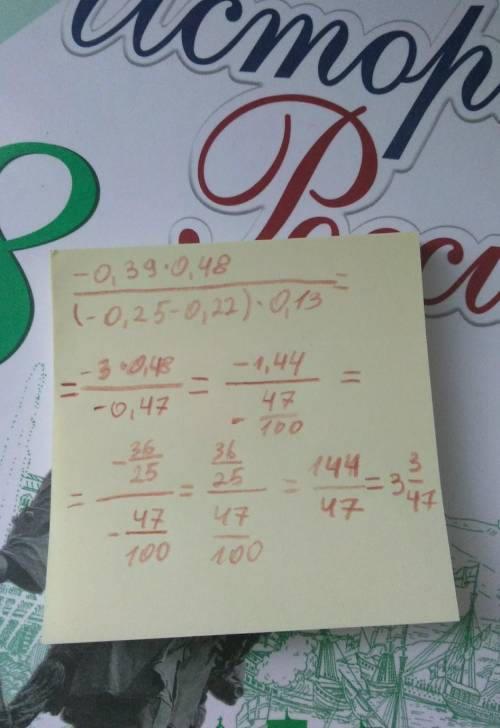 Истор
Росси
8
\frac{-0,39 \cdot 0,48}{(-0,25-0,22) \cdot 0,13} =
= \frac{-3 \cdot 0,48}{-0,47} = \frac{-1,44}{-\frac{47}{100}} =
= \frac{-\frac{36}{25}}{-\frac{47}{100}} = \frac{\frac{36}{25}}{\frac{47}{100}} = \frac{144}{47} = 3\frac{3}{47}